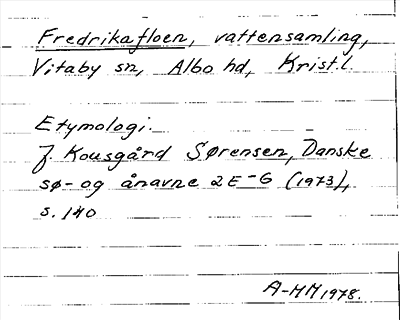 Fredrikafloen, vattensamling,
Vitaby sn, Albo hd, Krist.l.
Etymologi.
J. Kousgård Sørensen, Danske
sø- og ånavne 2 E-G (1973),
s. 140
A-MM 1978.